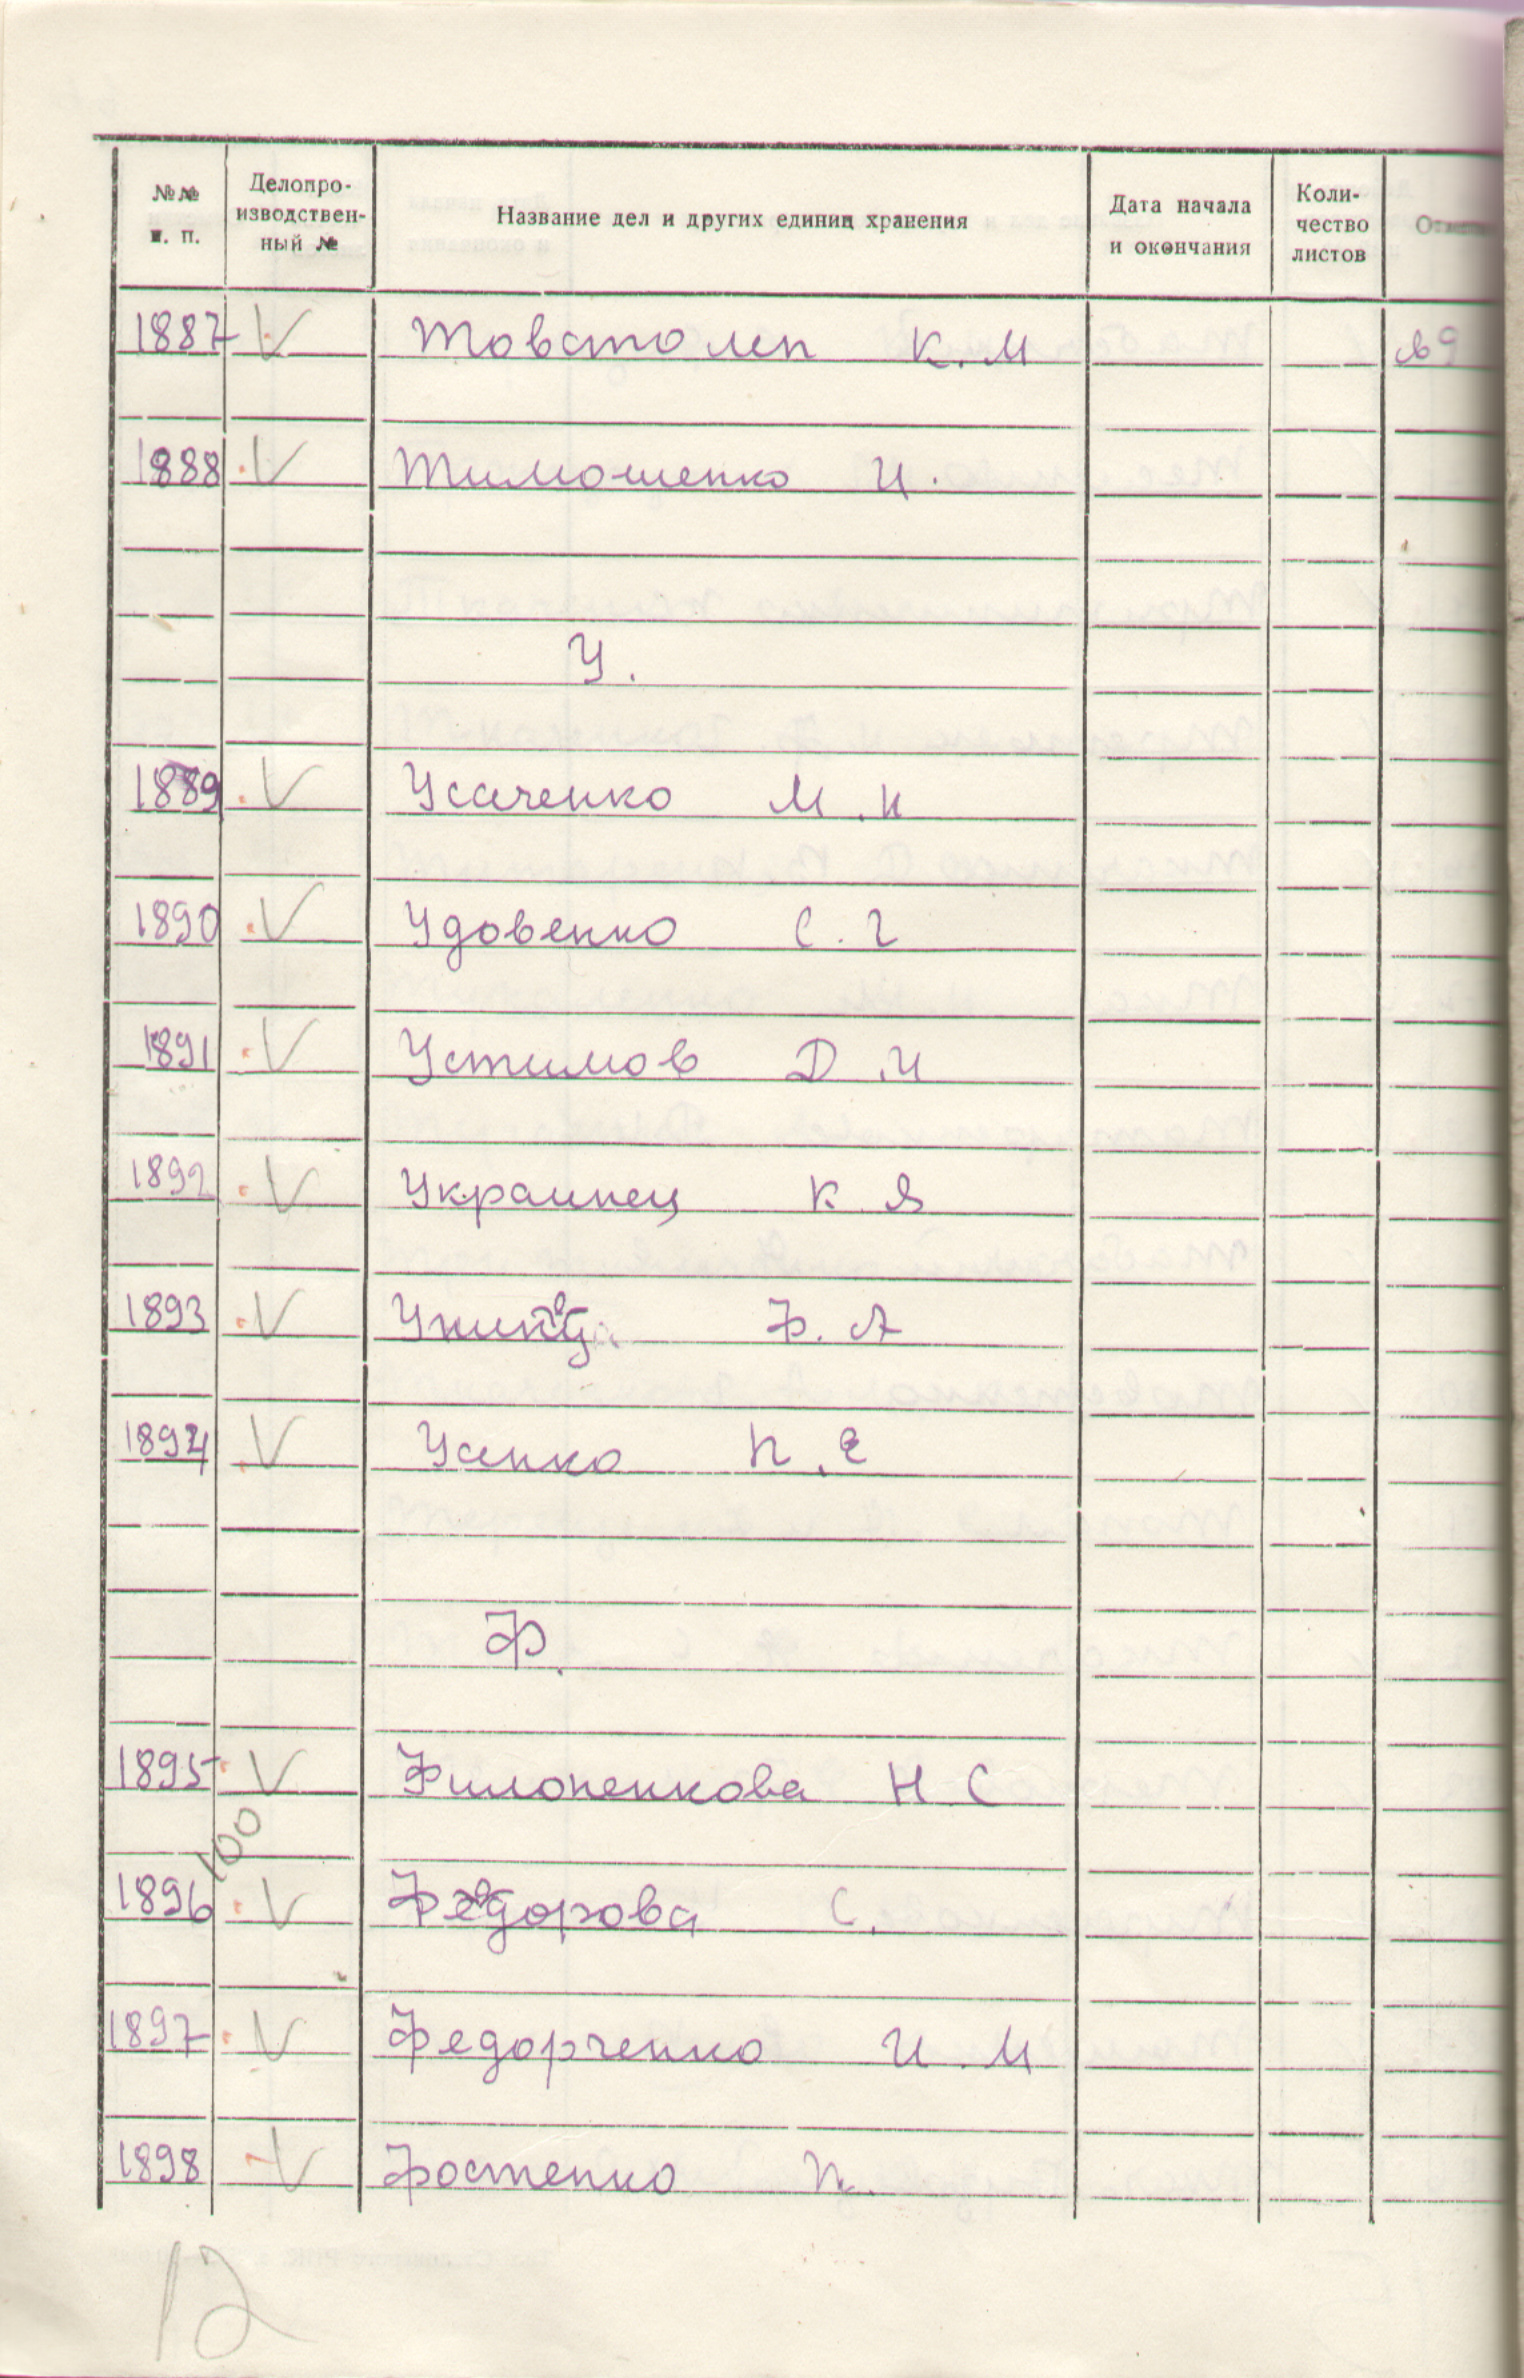 №№ п. п. Делопро-изводствен-ный № Название дел и других единиц хранения Дата начала и окончания Коли-чество листов
1887 V Товстолеп К. М
1888 V Тимошенко И.
У.
1889 V Усаченко М. И
1890 V Удовенко С. Г
1891 V Устимов Д. И
1892 V Украинец К Я
1893 V Ф. А
1894 V Усенко П. Е
Ф.
1895 V Филоненкова Н С
100
1896 V Федорова С.
1897 V Федорченко И. М
1898 V Фостенко П.
12